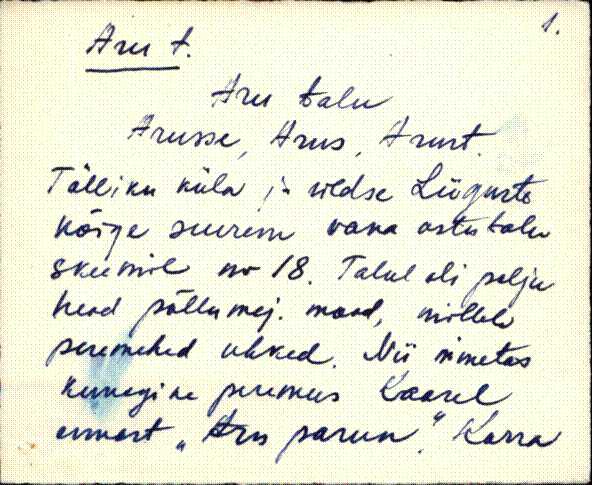 1.
Aru t.
Aru talu
Arusse, Arus, Arust.
Tälliku küla ja üldse Liiguste
kõige suurem vana ostutalu
skeemil nr 18. Talul oli palju
head põllumaj. maad, millele
peremehed uhked. Nii nimetas
kunagine peremees Kaarel
ennast „Aru parun". Korra